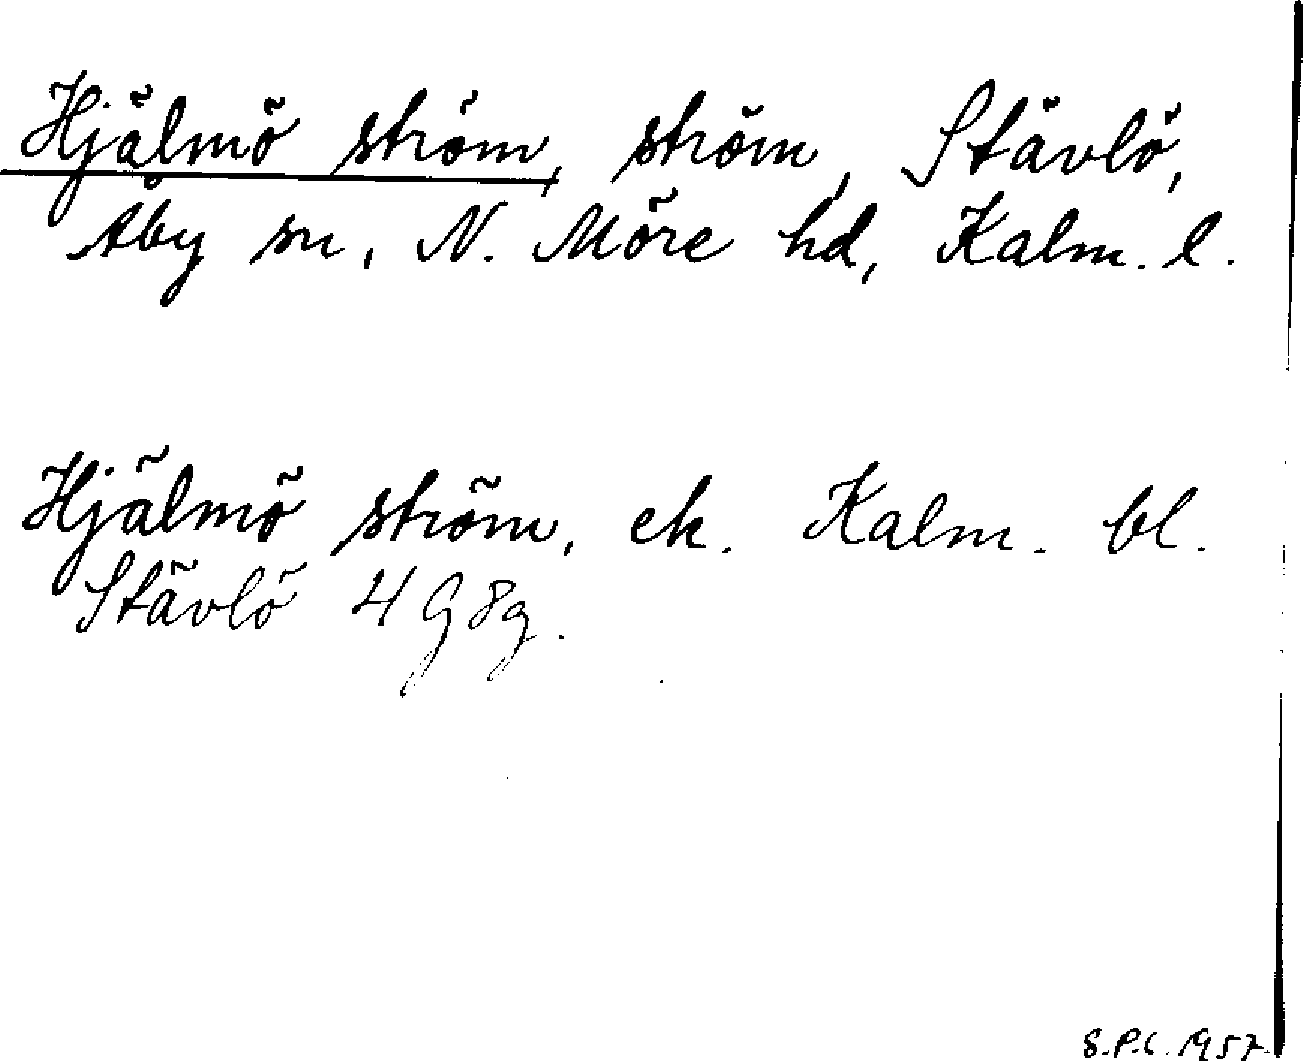 Hjälmö ström, ström, Stävlö,
Åby sn, N. Möre hd, Kalm. l.
Hjälmö ström, ek. Kalm. bl.
Stävlö 4 G 8 g.
S.P.C. 1957.